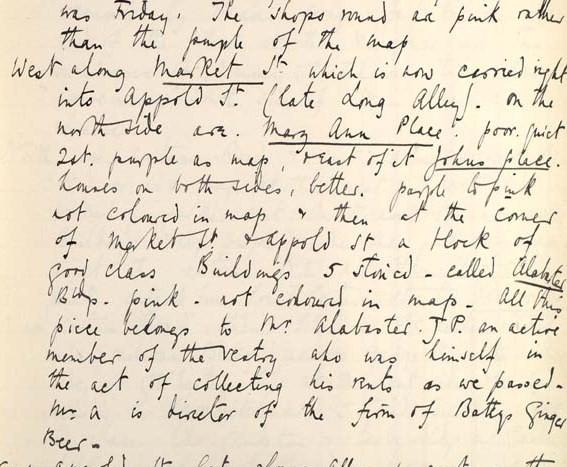 was Friday. The shops round are pink rather
than the purple of the map
West along Market St. which is now carried right
into Appold St. (late Long Alley). On the
north side are. Mary Ann Place. poor. quiet
2 st. purple as map, & east of it Johns place.
houses on both sides, better. purple to pink
not coloured in map & then at the corner
of Market St. & Appold St a block of
good class Buildings 5 storied - called Alabaster
Bldgs. pink. not coloured in map - All this
piece belongs to Mr. Alabaster. J.P. an active
member of the vestry who was himself in
the act of collecting his rents as we passed -
Mr A is Director of the firm of Battys Ginger
Beer -